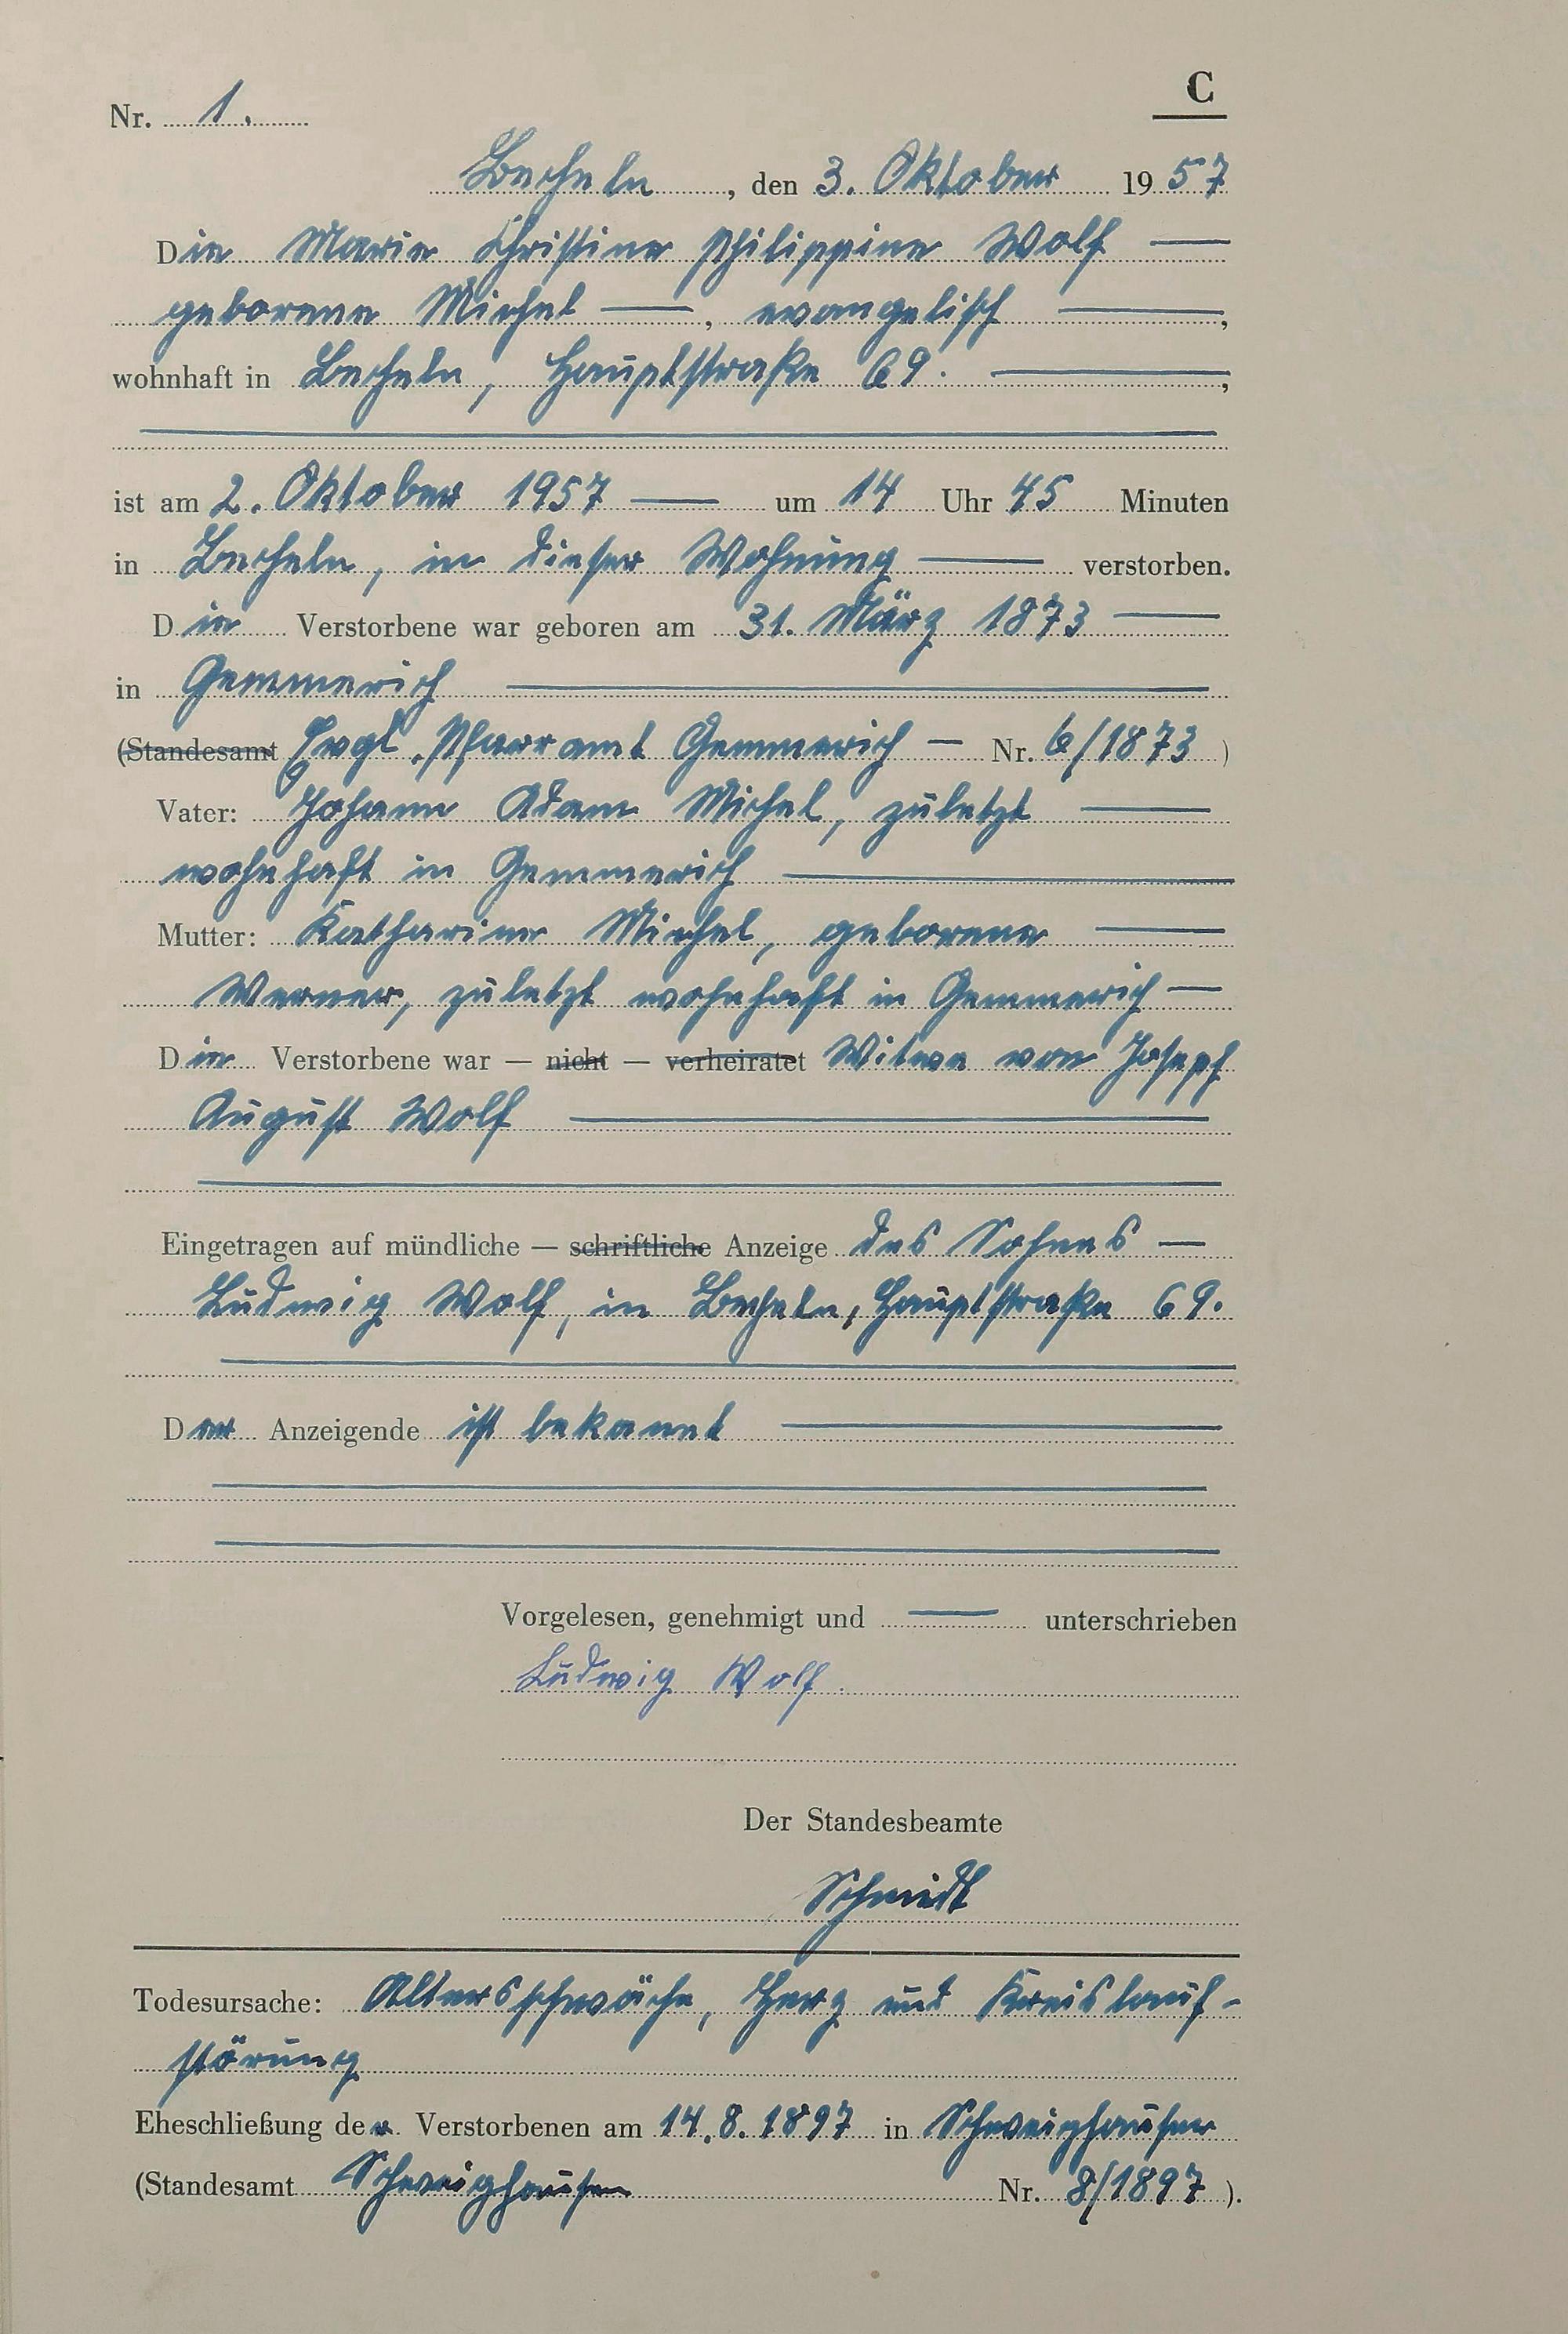 C
Nr. 1.
Becheln, den 3. Oktober 1957
Die Marie Christine Philippine Wolf
geborene Michel —, evangelisch —,
wohnhaft in Becheln, Hauptstraße 69. —,
ist am 2. Oktober 1957 — um 14 Uhr 45 Minuten
in Becheln, in dieser Wohnung — verstorben.
Die Verstorbene war geboren am 31. März 1873 —
in Gemmerich —
(Standesamt Evgl. Pfarramt Gemmerich — Nr. 6/1873)
Vater: Johann Adam Michel, zuletzt —
wohnhaft in Gemmerich —
Mutter: Katharine Michel, geborene —
Werner, zuletzt wohnhaft in Gemmerich —
Die Verstorbene war — nicht — verheiratet Witwe von Joseph
August Wolf —
Eingetragen auf mündliche — schriftliche Anzeige des Sohnes —
Ludwig Wolf, in Becheln, Hauptstraße 69.
Der Anzeigende ist bekannt —
Vorgelesen, genehmigt und — unterschrieben
Ludwig Wolf.
Der Standesbeamte
Schmidt
Todesursache: Altersschwäche, Herz und Kreislauf-
störung
Eheschließung der Verstorbenen am 14.8.1897 in Schweighausen
(Standesamt Schweighausen Nr. 8/1897).